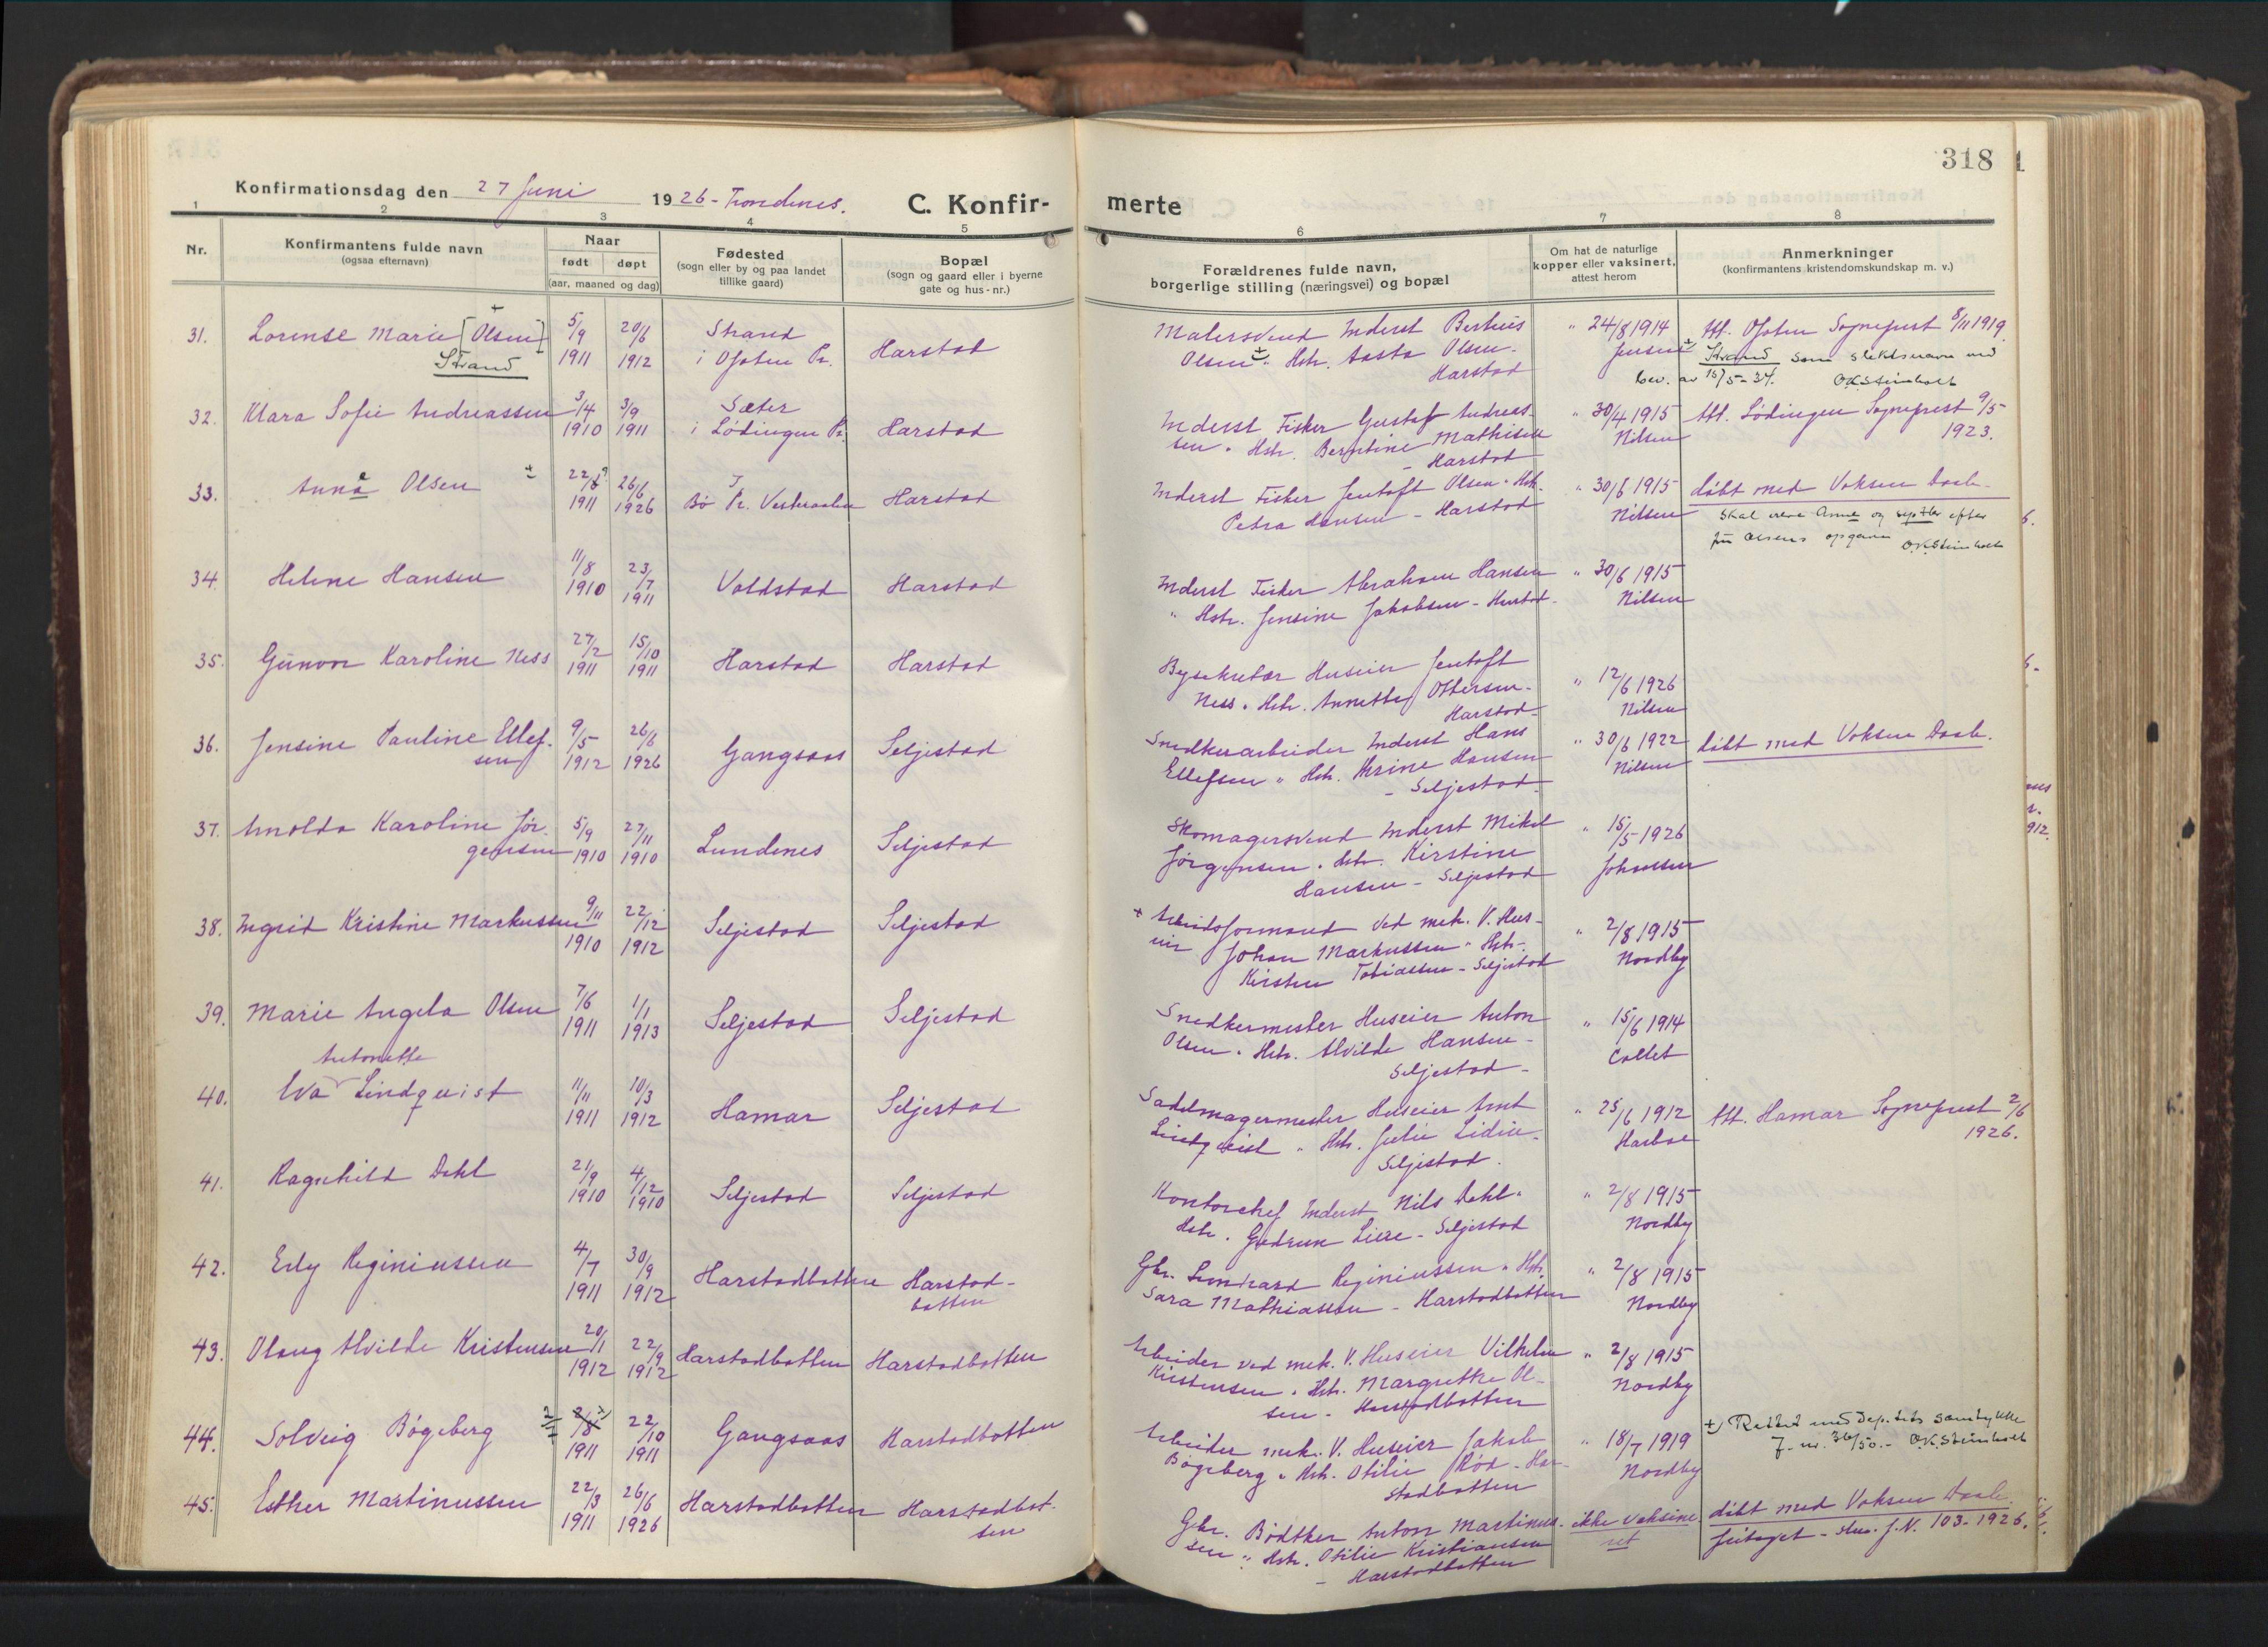 318
Konfirmationsdag den 27 Juni 1926 - Trondenes.
C. Konfir-
merte
1 2 3 4 5 6 7 8
Nr.
Konfirmantens fulde navn
(ogsaa efternavn)
Naar
født døpt
(aar, maaned og dag)
Fødested
(sogn eller by og paa landet
tillike gaard)
Bopæl
(sogn og gaard eller i byerne
gate og hus-nr.)
Forældrenes fulde navn,
borgerlige stilling (næringsvei) og bopæl
Om hat de naturlige
kopper eller vaksinert,
attest herom
Anmerkninger
(konfirmantens kristendomskundskap m. v.)
31. Lorense Marie [Olsen] +
Strand
5/9 1911
20/6 1912
Strand
i Ofoten Pr.
Harstad
Malersvend Inderst Berteus
Olsen + " Hstr. Aasta Olsen.
Harstad
" 24/8 1914
Jensen
Att. Ofoten Sogneprest 8/11 1919.
+ Strand som slektsnavn med
bev. av 15/5-34. O.K. Steinholt
32. Klara Sofie Andreassen
3/4 1910
3/9 1911
Sæter
i Lødingen Pr.
Harstad
Inderst Fisker Gustaf Andreas-
sen " Hstr. Berntine Mathisen
- Harstad
" 30/4 1915
Nilsen
Att. Lødingen Sogneprest 9/5
1923.
33. Anna Olsen +
e
22/8 1911
26/6 1926
I
Bø Pr. Vesteraalen
Harstad
Inderst Fisker Jentoft Olsen " Hstr.
Petra Hansen - Harstad
" 30/6 1915
Nilsen
døbt med Voksen Daab.
Skal være Anne og septbr efter
fru Olsens opgave O.K. Steinholt
34. Helene Hansen
11/8 1910
23/7 1911
Voldstad
Harstad
Inderst Fisker Abraham Hansen
" Hstr. Jensine Jakobsen - Harstad.
" 30/6 1915
Nilsen
35. Gunvor Karoline Ness
27/2 1911
15/10 1911
Harstad
Harstad
Bysekretær Huseier Jentoft
Ness " Hstr. Annette Ottersen -
Harstad -
" 12/6 1926
Nilsen
36. Jensine Pauline Ellef-
sen
9/5 1912
26/6 1926
Gangsaas
Seljestad
Snedkerarbeider Inderst Hans
Ellefsen " Hstr. Krine Hansen
- Seljestad
" 30/6 1922
Nilsen
døbt med Voksen Daab.
37. Arnolda Karoline Jør-
gensen
5/9 1910
27/11 1910
Lundenes
Seljestad
Skomagersvend Inderst Mikal
Jørgensen " Hstr. Kirstine
Hansen - Seljestad
" 15/5 1926
Johansen
38. Ingrid Kristine Markussen
9/11 1910
22/12 1912
Seljestad
Seljestad
+ Arbeidsformand ved mek. V. Hus-
eier Johan Markussen " Hstr.
Kirsten Tobiassen - Seljestad
" 2/8 1915
Nordby
39. Marie Angela Olsen
7/6 1911
1/1 1913
Seljestad
Seljestad
Snedkermester Huseier Anton
Olsen " Hstr. Alvilde Hansen -
Seljestad -
" 15/6 1914
Collet
40. Eva Lindqvist
Antonette
11/11 1911
10/3 1912
Hamar
Seljestad
Sadelmagermester Huseier Arnt
Lindqvist " Hstr. Julie Lidie -
Seljestad.
" 25/6 1912
Harboe
Att. Hamar Sogneprest 2/6
1926.
41. Ragnhild Dahl
21/9 1910
4/12 1910
Seljestad
Seljestad
Kontorchef Inderst Nils Dahl "
Hstr. Gudrun Liere - Seljestad
" 2/8 1915
Nordby
42. Edly Reginiussen
4/7 1911
30/9 1912
Harstadbotten
Harstad-
botten
Gbr. Leonhard Reginiussen " Hstr.
Sara Mathiassen - Harstadbotten
" 2/8 1915
Nordby
43. Olaug Alvilde Kristensen
20/1 1912
22/9 1912
Harstadbotten
Harstadbotten
Arbeider ved mek. V. Huseier Vilhelm
Kristensen " Hstr. Margrethe Ol-
sen - Harstadbotten
" 2/8 1915
Nordby
44. Solveig Bøgeberg
2/8 1911
22/10 1911
Gangsaas
Harstadbotten
Arbeider mek. V. Huseier Jakob
Bøgeberg " Hstr. Otilie Rød - Har-
stadbotten
" 18/7 1919
Nordby
+) Rettet med Dep.tets samtykke
J. nr. 36/50. - O.K. Steinholt
45. Esther Martinussen
22/3 1911
26/6 1926
Harstadbotten
Harstadbot-
ten
Gbr. Bødtker Anton Martinus-
sen " Hstr. Otilie Kristiansen
- Harstadbotten
ikke vaksine-
ret
døbt med Voksen Daab.
fritaget - J.N. 103-1926.